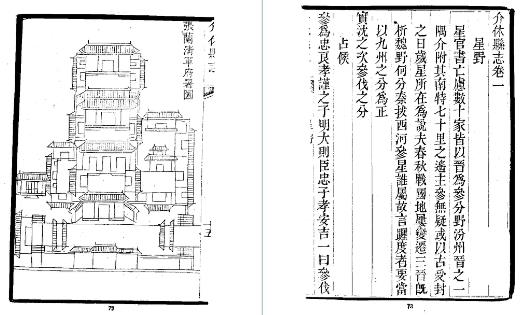 介休縣志卷一
星野
星官書亡慮數十家皆以晉為參分野汾州晉之一
隅介附其南特七十里之遙主參無疑或以古受封
之日歲星所在為說夫春秋戰國地屢變遷三晉既
析魏野何分秦拔西河參星誰屬故言躔度者要當
以九州之分為正
實沈之次參伐之分
占候
參為忠良孝謹之子明大則臣忠子孝安吉一曰參伐
張蘭清軍府署圖
73